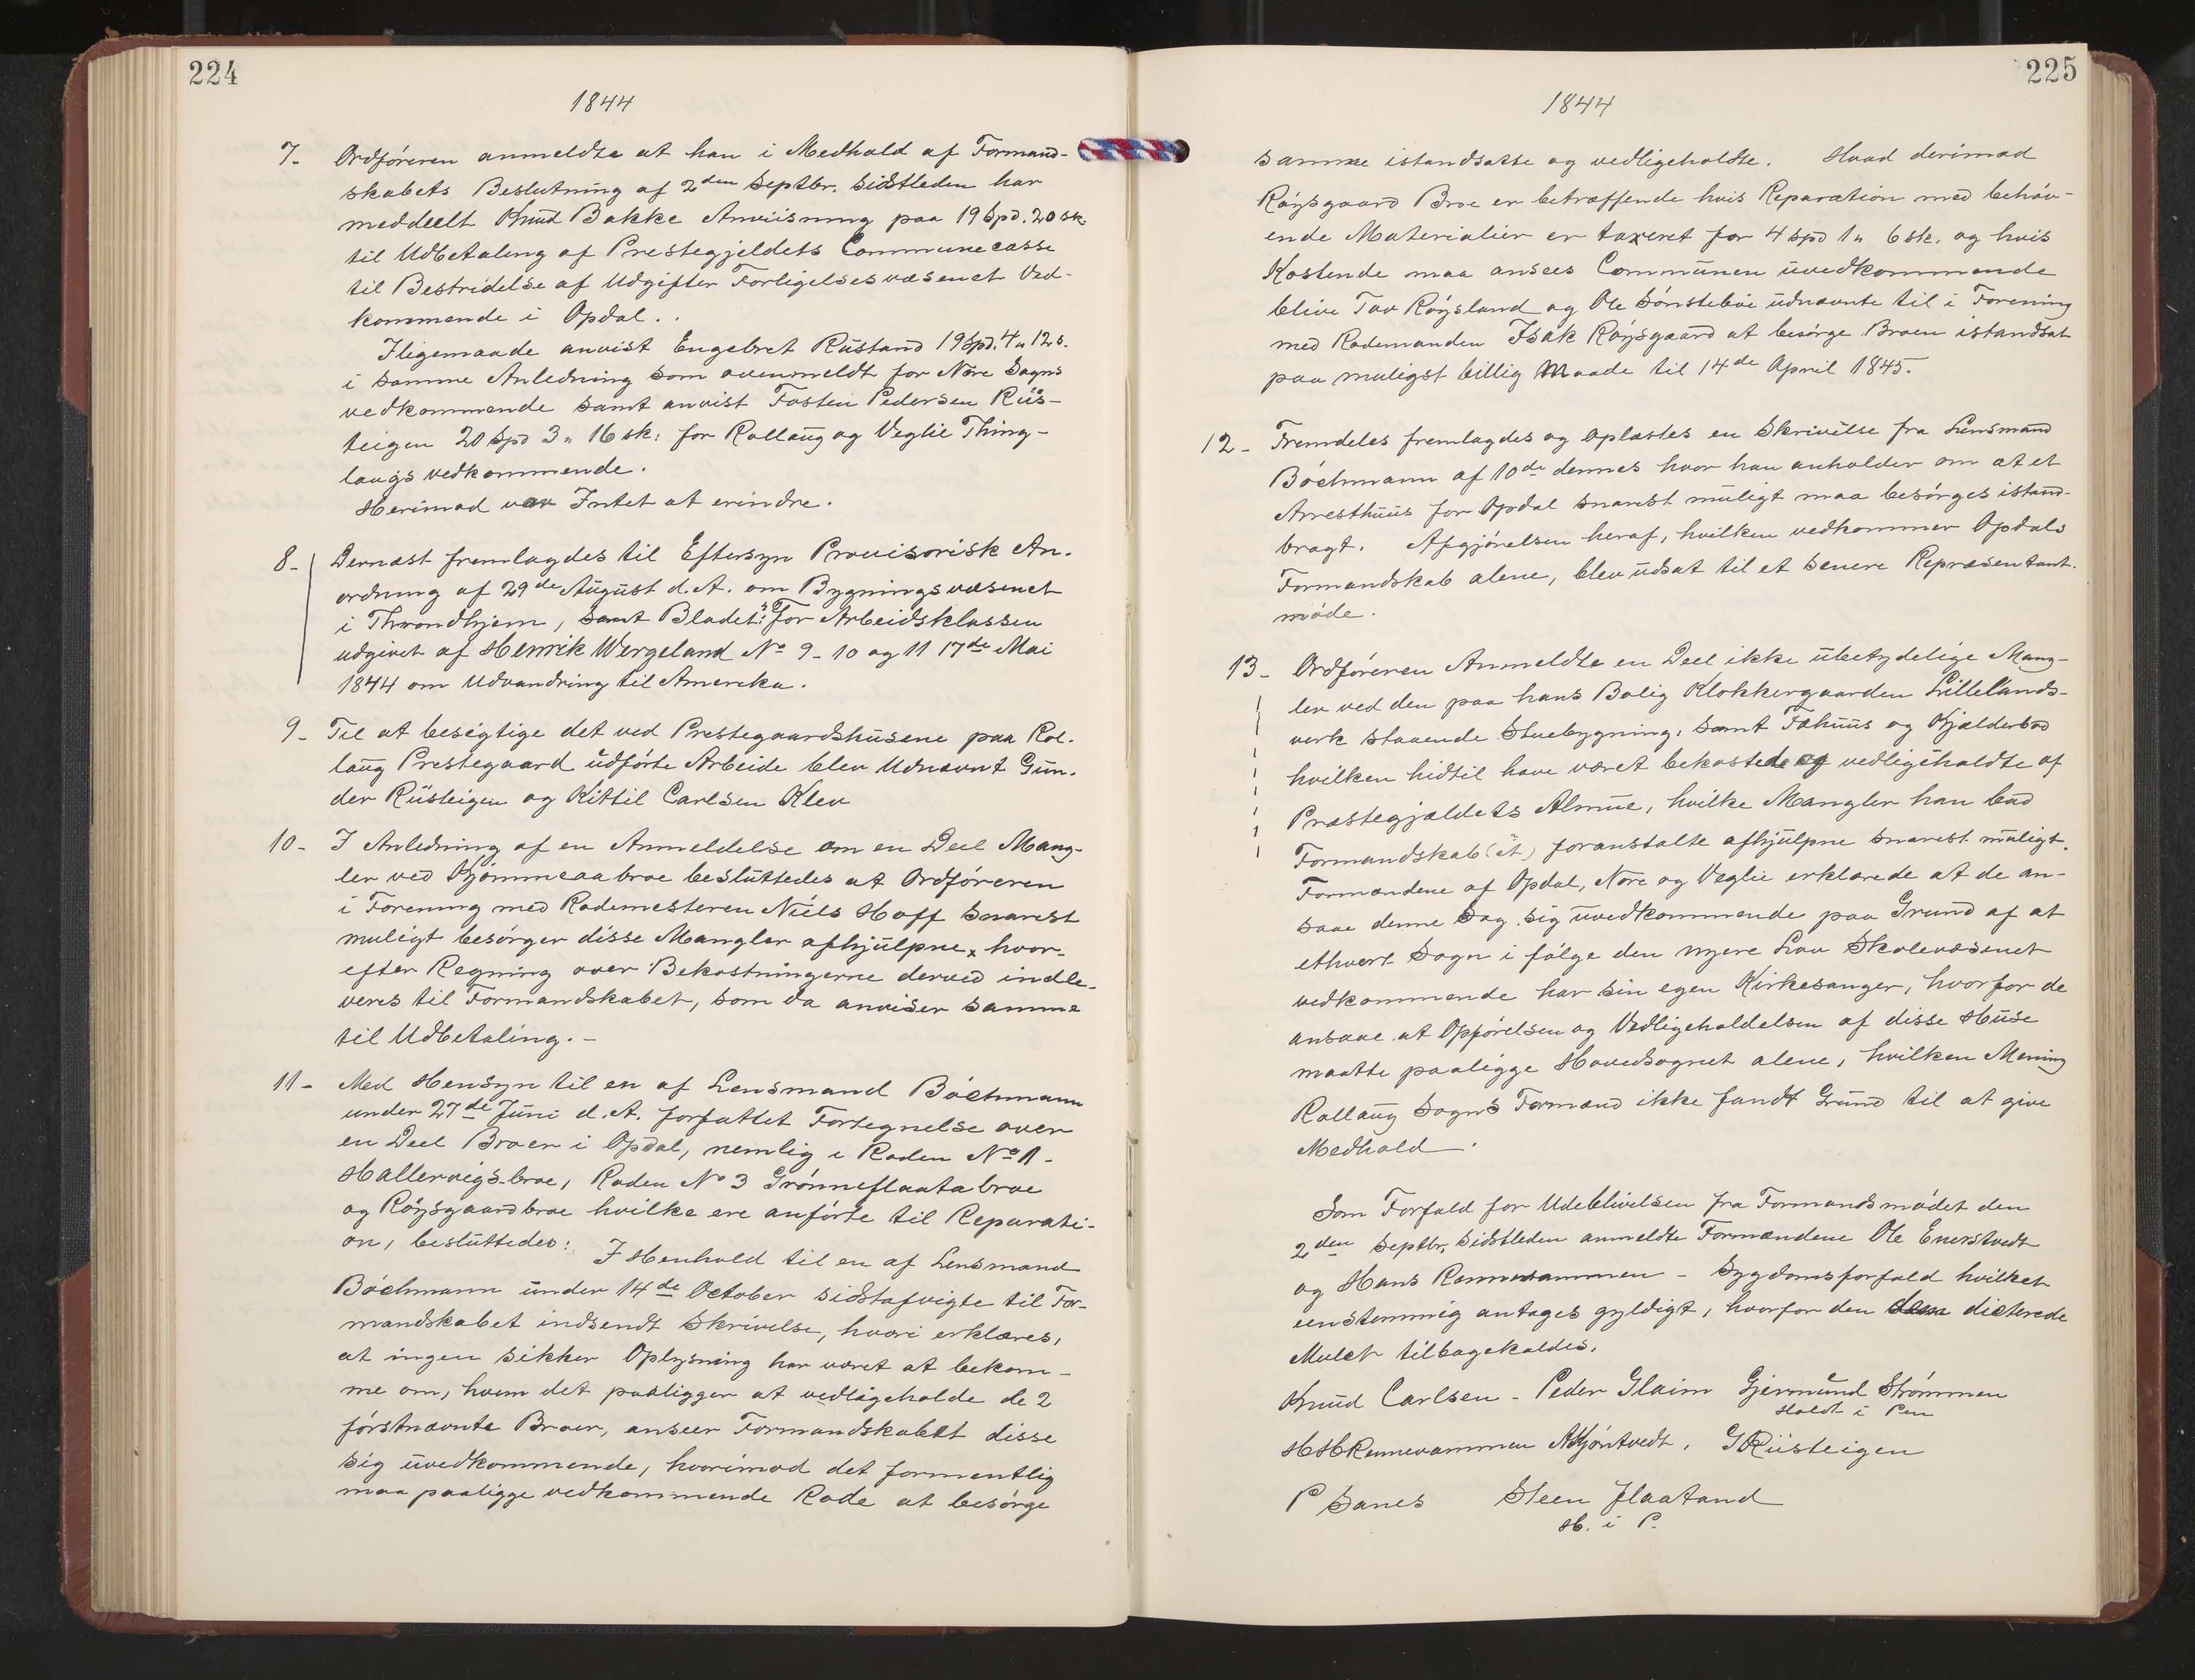 224
1844
7- Ordføreren anmeldte at han i Medhold af Formand-
skabets Beslutning af 2den Septbr. sidstleden har
meddeelt Knud Bakke Anviisning paa 19 Spd. 20 sk.
til Udbetaling af Prestegjeldets Communecasse
til Bestridelse af Udgifter Forligelsesvæsenet Ved-
kommende i Opdal.
Iligemaade anvist Engebret Rustand 19 Spd. 4 „ 12 s.
i samme Anledning som ovenmeldt for Nore Sogns
vedkommende samt anvist Tosten Pedersen Rüs-
teigen 20 Spd 3 „ 16 sk: for Rollaug og Veglie Thing-
laugs vedkommende.
Herimod var Intet at erindre.
8- Dernæst fremlagdes til Eftersyn Provisorisk An-
ordning af 29de August d.A. om Bygningsvæsenet
i Throndhjem, samt Bladet: "For Arbeidsklassen
udgivet af Henrik Wergeland No 9-10 og 11 17de Mai
1844 om Udvandring til Amerika.
9- Til at besigtige det ved Prestegaardshusene paa Rol-
laug Prestegaard udførte Arbeide blev Udnævnt Gun-
der Rüsteigen og Kittil Carlsen Klev
10- I Anledning af en Anmeldelse om en Deel Mang-
ler ved Kjømmeaabroe besluttedes at Ordføreren
i Forening med Rodemesteren Niels Hoff snarest
muligt besørger disse Mangler afhjulpne, hvor-
efter Regning over Bekostningerne derved indle-
veres til Formandskabet, som da anviser samme
til Udbetaling. -
11- Med Hensyn til en af Lensmand Bøchmann
under 27de Juni d.A. forfattet Fortegnelse over
en Deel Broer i Opdal, nemlig i Roden No 1-
Hallervigs-broe, Roden No 3 Grønneflaatabroe
og Røysgaardbroe hvilke ere anførte til Reparati-
on, besluttedes: I Henhold til en af Lensmand
Bøchmann under 14de October sidstafvigte til For-
mandskabet indsendt Skrivelse, hvori erklæres,
at ingen sikker Oplysning har været at bekom-
me om, hvem det paaligger at vedligeholde de 2
førstnævnte Broer, anseer Formandskabet disse
sig uvedkommende, hvorimod det formentlig
maa paaligge vedkommende Rode at besørge
225
1844
samme istandsatte og vedligeholdte. Hvad derimod
Røysgaard Broe er betræffende hvis Reparation med behøv-
ende Materialier er taxeret for 4 spd 1 „ 6 sk. og hvis
Kostende maa ansees Communen uvedkommende
blive Tov Røysland og Ole Sønstebøe udnævnte til i Forening
med Rodemanden Isak Røysgaard at besørge Broen istandsat
paa muligst billig Maade til 14de April 1845.
12- Fremdeles fremlagdes og oplæstes en Skrivelse fra Lensmand
Bøchmann af 10de dennes hvor han anholder om at et
Arresthuus for Opdal snarest muligt maa besørges istand-
bragt. Afgjørelsen heraf, hvilken vedkommer Opdals
Formandskab alene, blev udsat til et senere Repræsentant-
møde.
13- Ordføreren Anmeldte en Deel ikke ubetydelige Mang-
ler ved den paa hans Bolig Klokkergaarden Lillelands-
verk staaende Stuebygning, samt Fæhuus og Kjælderbod
hvilken hidtil have været bekostede og vedligeholdte af
Præstegjældets Almue, hvilke Mangler han bad
Formandskab(et) foranstalte afhjulpne snarest muligt.
Formændene af Opdal, Nore og Veglie erklærede at de an-
saae denne Sag sig uvedkommende paa Grund af at
ethvert Sogn i følge den nyere Lov Skolevæsenet
vedkommende har sin egen Kirkesanger, hvorfor de
ansaae at Opførelsen og Vedligeholdelsen af disse Huse
maatte paaligge Hovedsognet alene, hvilken Mening
Rollaug Sogns Formænd ikke fandt Grund til at give
Medhold.
Som Forfald for Udeblivelsen fra Formandsmødet den
2den Septbr. sidstleden anmeldte Formændene Ole Enerstvedt
og Hans Rennevammen - Sygdomsforfald hvilket
eenstemmig antages gyldigt, hvorfor den dem dicterede
Mulct tilbagekaldes.
Knud Carlsen - Peder Glaim Gjermund Strømmen
Holdt i Pen
HHRennevammen NKjøntvedt. GRüsteigen
P Sanes Steen Flaatand
H. i P.